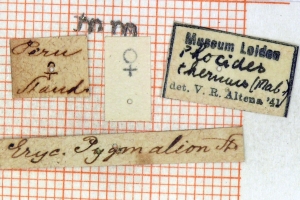 Peru
♀
Staud.
♀
Museum Leiden
Phocides
thermus (Mab.)
det. V. R. Altena '41
Eryc. Pygmalion